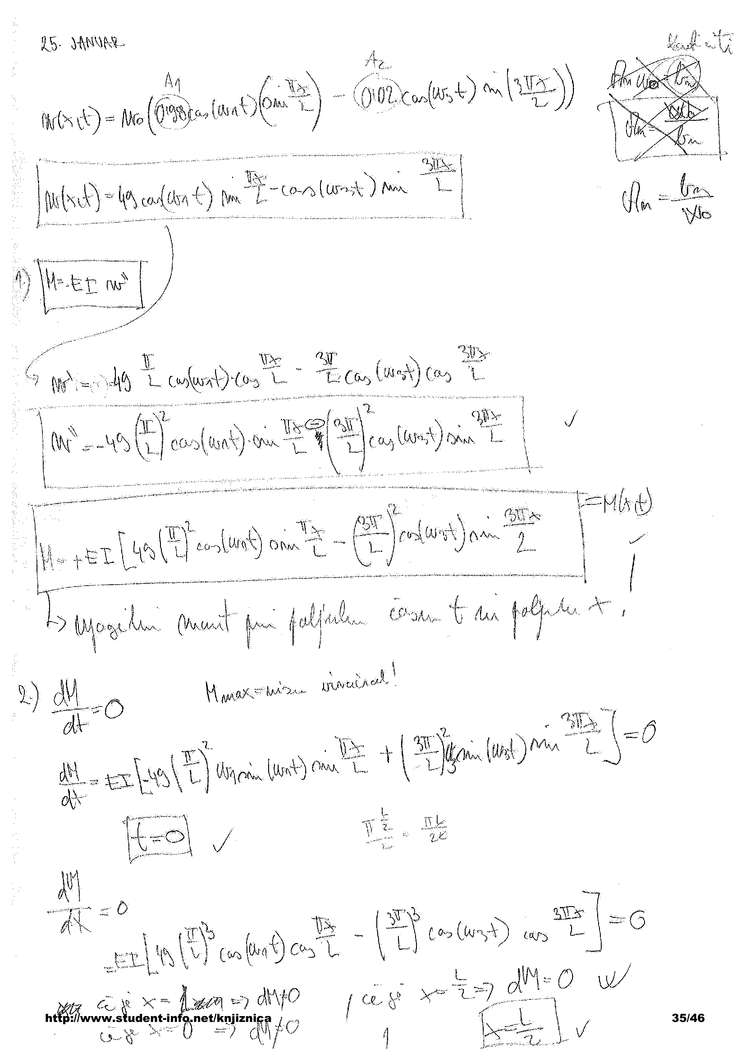 25. JANUAR
A1 A2
w(x,t) = w0 (0'98 cos(ω1t) (sin πx/L) - 0'02 cos(ω3t) sin (3πx/2))
An = bn/w0
w(x,t) = 49 cos(ω1t) sin πx/L - cos(ω3t) sin 3πx/L
1.) M = -EI w''
w' = 49 π/L cos(ω1t)·cos πx/L - 3π/L cos(ω3t) cos 3πx/L
w'' = -49 (π/L)² cos(ω1t)·sin πx/L - (3π/L)² cos(ω3t) sin 3πx/L ✓
M = +EI [49 (π/L)² cos(ω1t) sin πx/L - (3π/L)² cos(ω3t) sin 3πx/2 = M(x,t) ✓
↳ upogibni pri poljubnem času t in poljubu x.
2.) dM/dt = 0 Mmax = nisu !
dM/dt = EI [-49 (π/L)² ω1 sin (ω1t) sin πx/L + (3π/L)² ω3 sin (ω3t) sin 3πx/L] = 0
t = 0 ✓
dM/dx = 0
= EI [49 (π/L)³ cos(ω1t) cos πx/L - (3π/L)³ cos(ω3t) cos 3πx/L] = 0
če je x = => dM≠0 , če je x = L/2 => dM = 0
če je x = 0 => dM≠0 x = L/2 ✓
http://www.student-info.net/knjiznica 35/46